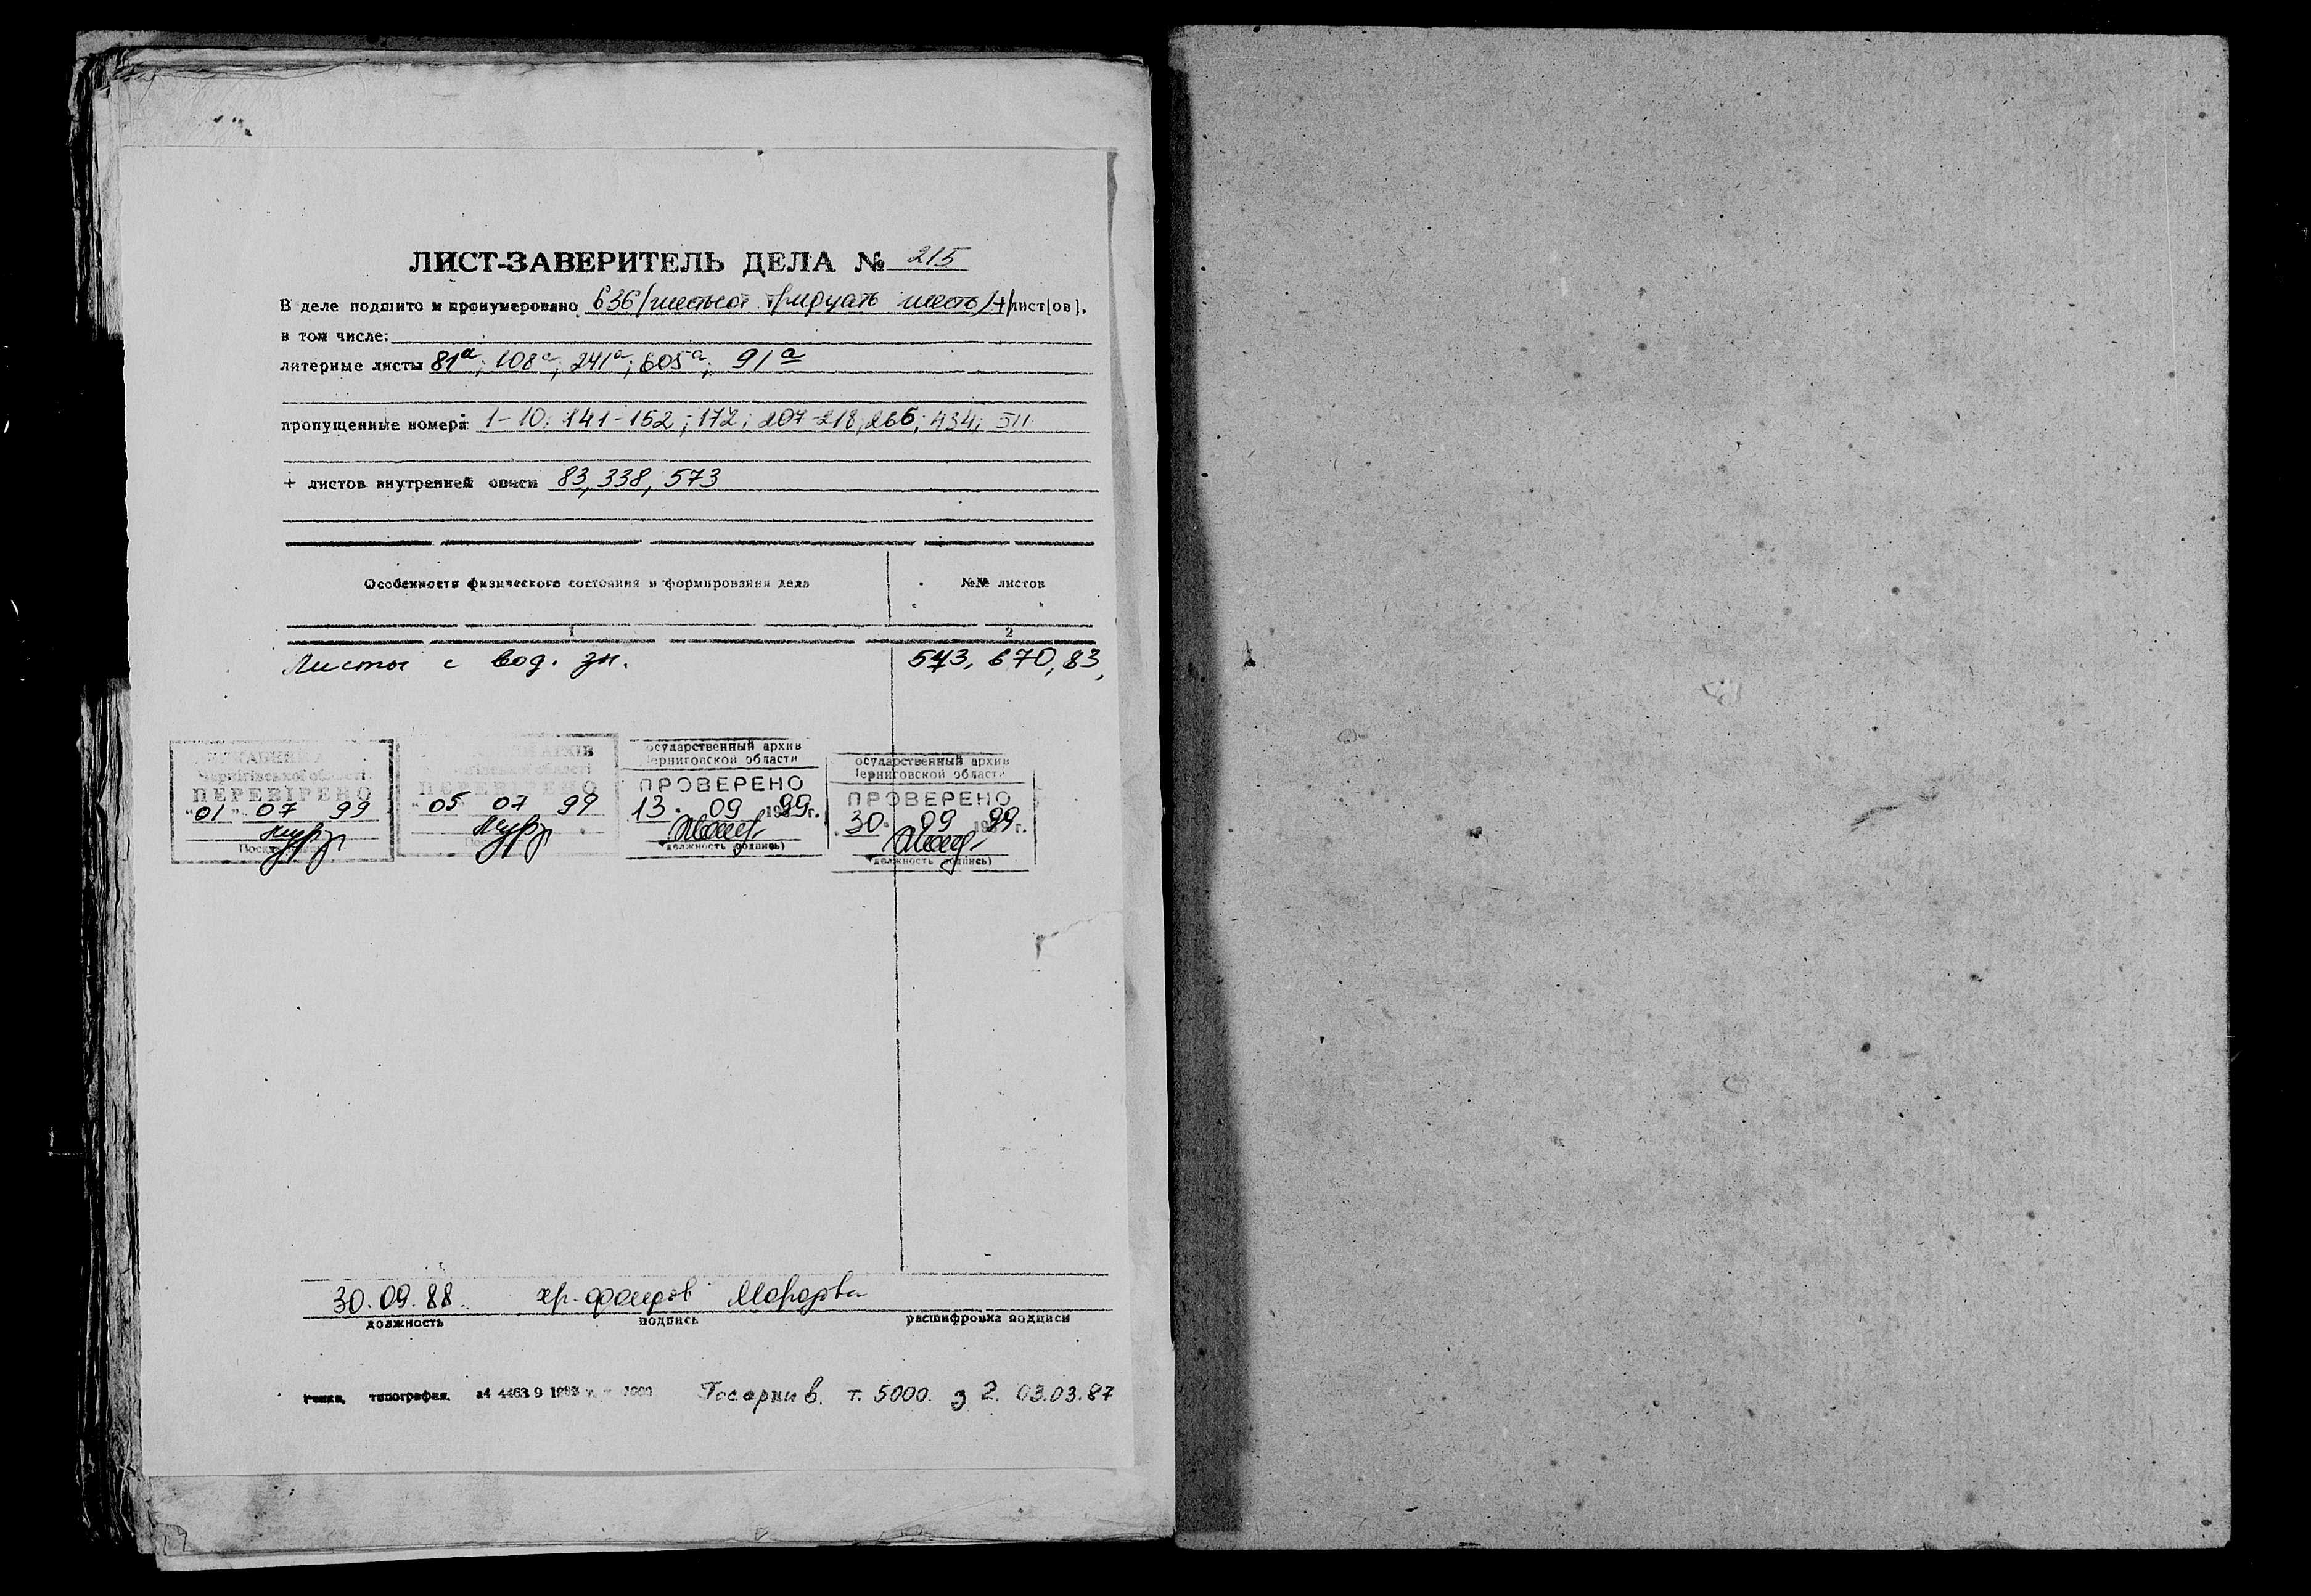 ЛИСТ-ЗАВЕРИТЕЛЬ ДЕЛА № 215
В деле подшито и пронумеровано 636 /шестьсот тридцать шесть/+лист[ов],
в том числе:
литерные листы 81а; 108а; 241а; 605а; 91а
пропущенные номера 1-10; 141-152; 172; 207-218; 266; 434; 511
+ листов внутренней описи 83, 338, 573
Особенности физического состояния и формирования дела №№ листов
1 2
Листы с вод. зн. 573, 670, 83,
Чернігівської області
ПЕРЕВІРЕНО
"01" 07 99
АРХІВ
області
ПЕРЕВІРЕНО
05 07 99
осударственный архив
Черниговской области
ПРОВЕРЕНО
13 09 1999г.
(должность подпись)
осударственный архив
Черниговской области
ПРОВЕРЕНО
30 09 99г.
(должность подпись)
30.09.88. хр. фондов
должность подпись расшифровка подписи
типография т. 5000. з 2. 03.03.87